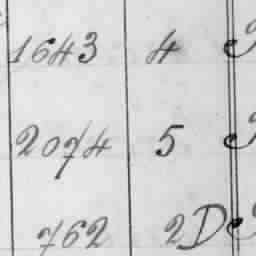 1643 4
2074 5
762 2D